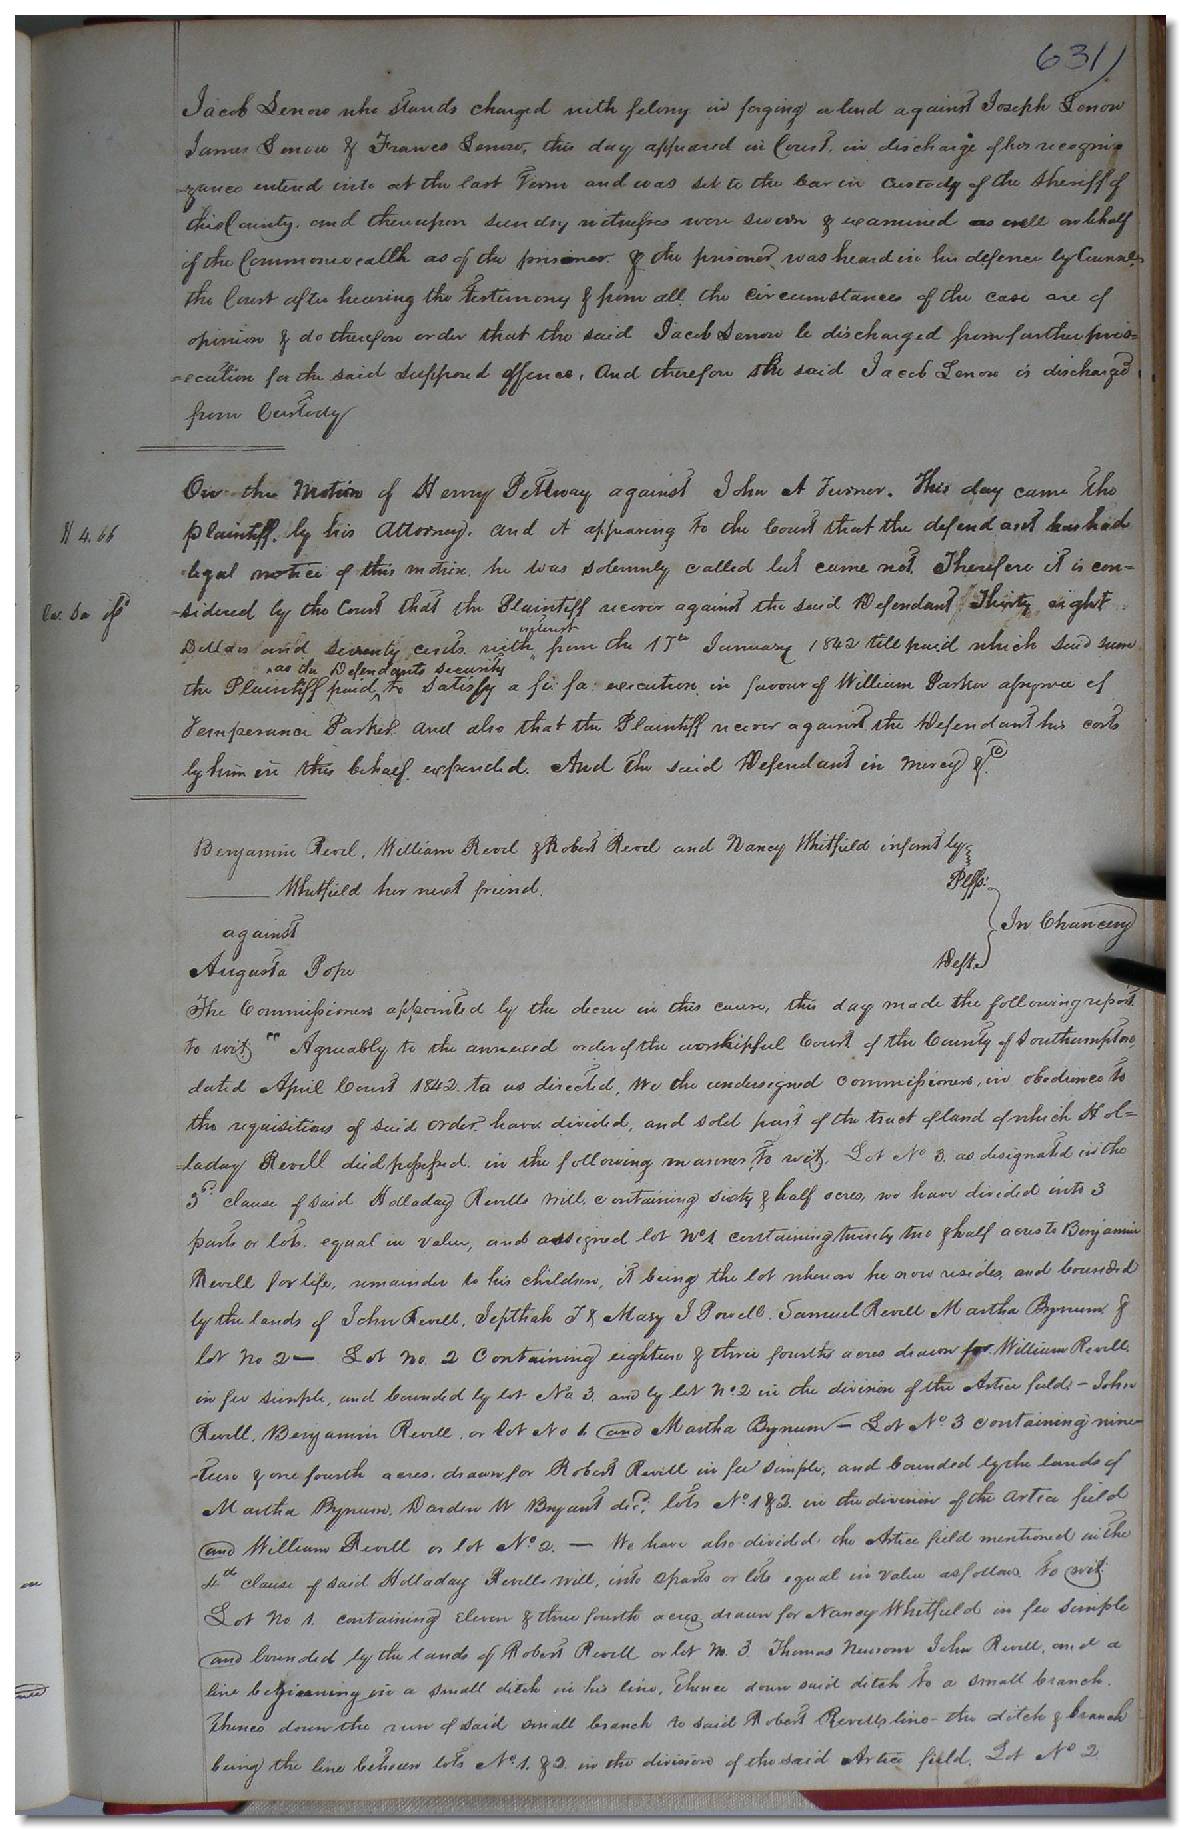 631)
Jacob Lenow who stands charged with felony in forging a bond against Joseph Lenow
James Lenow & Frances Lenow, this day appeared in Court, in discharge of his recogni-
-zance entered into at the last Term and was set to the bar in Custody of the Sheriff of
this County. and thereupon sundry witnesses were sworn & examined as well on behalf
of the Commonwealth as of the prisoner. & the prisoner was heard in his defence by Counsel,
the Court after hearing the testimony & from all the circumstances of the case are of
opinion & do therefore order that the said Jacob Lenow be discharged from further pros-
-ecution for the said supposed offence, And therefore the said Jacob Lenow is discharged
from Custody
On the Motion of Henry Pettway against John A Turner. This day came the
$ 4.66
plaintiff, by his Attorney, and it appearing to the Court that the defendant has had
legal notice of this motion he was solemnly called but came not. Therefore it is con-
Ca. Sa
-sidered by the Court that the Plaintiff recover against the said Defendant Thirty eight
Dollars and seventy cents with interest from the 17th January 1842 till paid which said sum
the Plaintiff paid, as the Defendants security to satisfy a fi: fa: execution in favour of William Parker assignee of
Temperance Parker. and also that the Plaintiff recover against the Defendant his costs
by him in this behalf expended. And the said Defendant in Mercy &c
Benjamin Revel, William Revel & Robert Revel and Nancy Whitfield infant by
Whitfield her next friend.
Plffs:
against
In Chancery
Augusta Pope
Deft.
The Commissioners appointed by the decree in this cause, this day made the following report
to wit, "Agreeably to the annexed order of the worshipful Court of the County of Southampton,
dated April Court 1842. to us directed, We the undersigned commissioners, in obedience to
the requisitions of said order have divided, and sold part of the tract of land of which Hol-
-laday Revell died possessed. in the following manner, to wit, Lot No 3. as designated in the
3d. clause of said Holladay Revells will, containing sixty & half acres, we have divided into 3
parts or lots. equal in value, and assigned lot No 1 containing twenty two & half acres to Benjamin
Revill for life, remainder to his children, it being the lot whereon he now resides, and bounded
by the lands of John Revell, Jepthah T & Mary J Powell. Samuel Revell Martha Bynum &
lot No 2 — Lot No. 2 Containing eighteen & three fourths acres drawn for William Revill
in fee simple, and bounded by lot No 3. and by lot No. 2 in the division of the Artice field - John
Revill, Benjamin Revill, or lot No 1. and Martha Bynum — Lot No. 3 containing nine-
-teen & one fourth acres. drawn for Robert Revill in fee simple, and bounded by the lands of
Martha Bynum, Darden W Bryant decd. lots No. 1 & 2. in the division of the Artice field
and William Revill or lot No. 2. — We have also divided the Artice field mentioned in the
4th clause of said Holladay Revells will, into 2 parts or lots equal in value as follows. to wit
Lot No 1. containing Eleven & three fourth acres drawn for Nancy Whitfield in fee simple
and bounded by the lands of Robert Revill or lot No. 3. Thomas Newsom John Revill, and a
line beginning in a small ditch in his line, thence down said ditch to a small branch.
Thence down the run of said small branch to said Robert Revills line - the ditch & branch
being the line between lots No. 1. & 2. in the division of the said Artice field. Lot No 2.